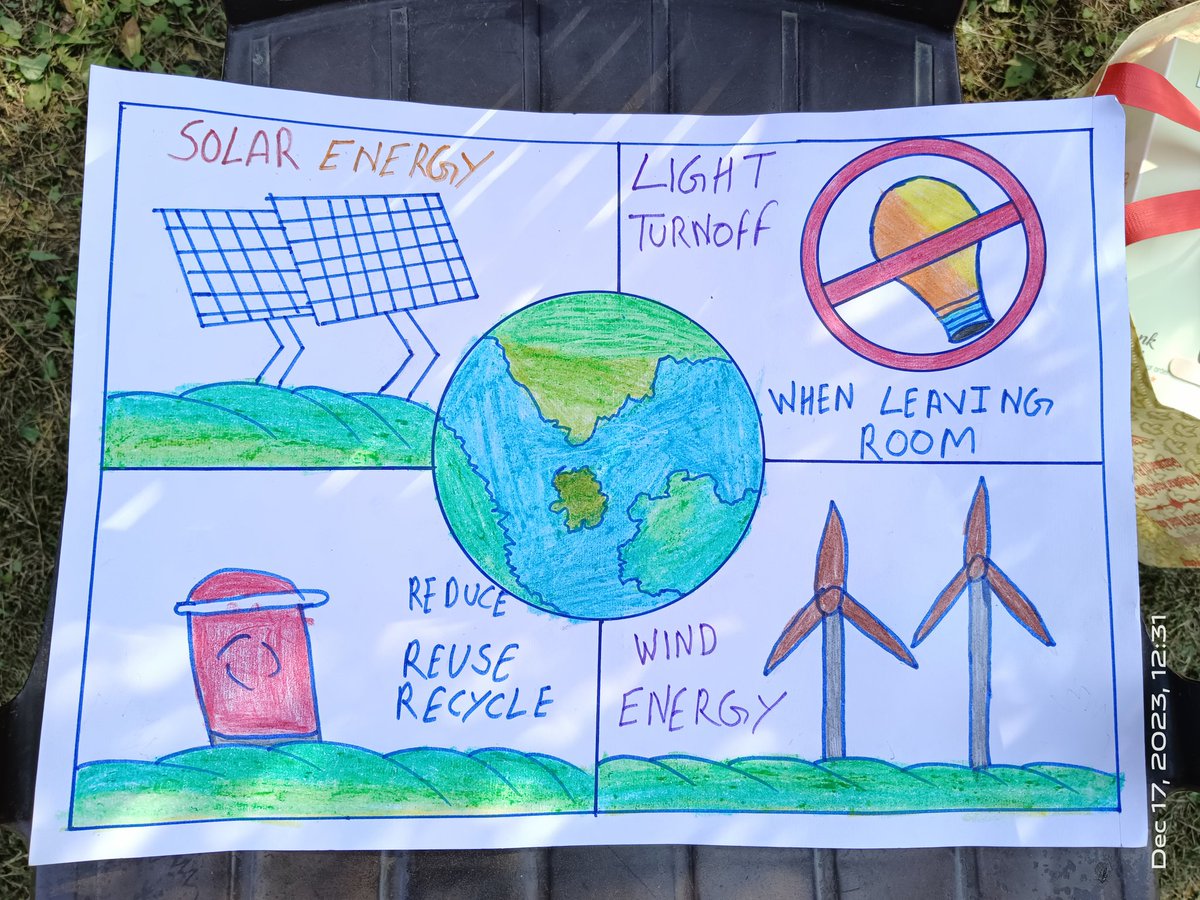 SOLAR ENERGY
LIGHT
TURNOFF
WHEN LEAVING
ROOM
REDUCE
REUSE
RECYCLE
WIND
ENERGY
Dec 17, 2023, 12:31